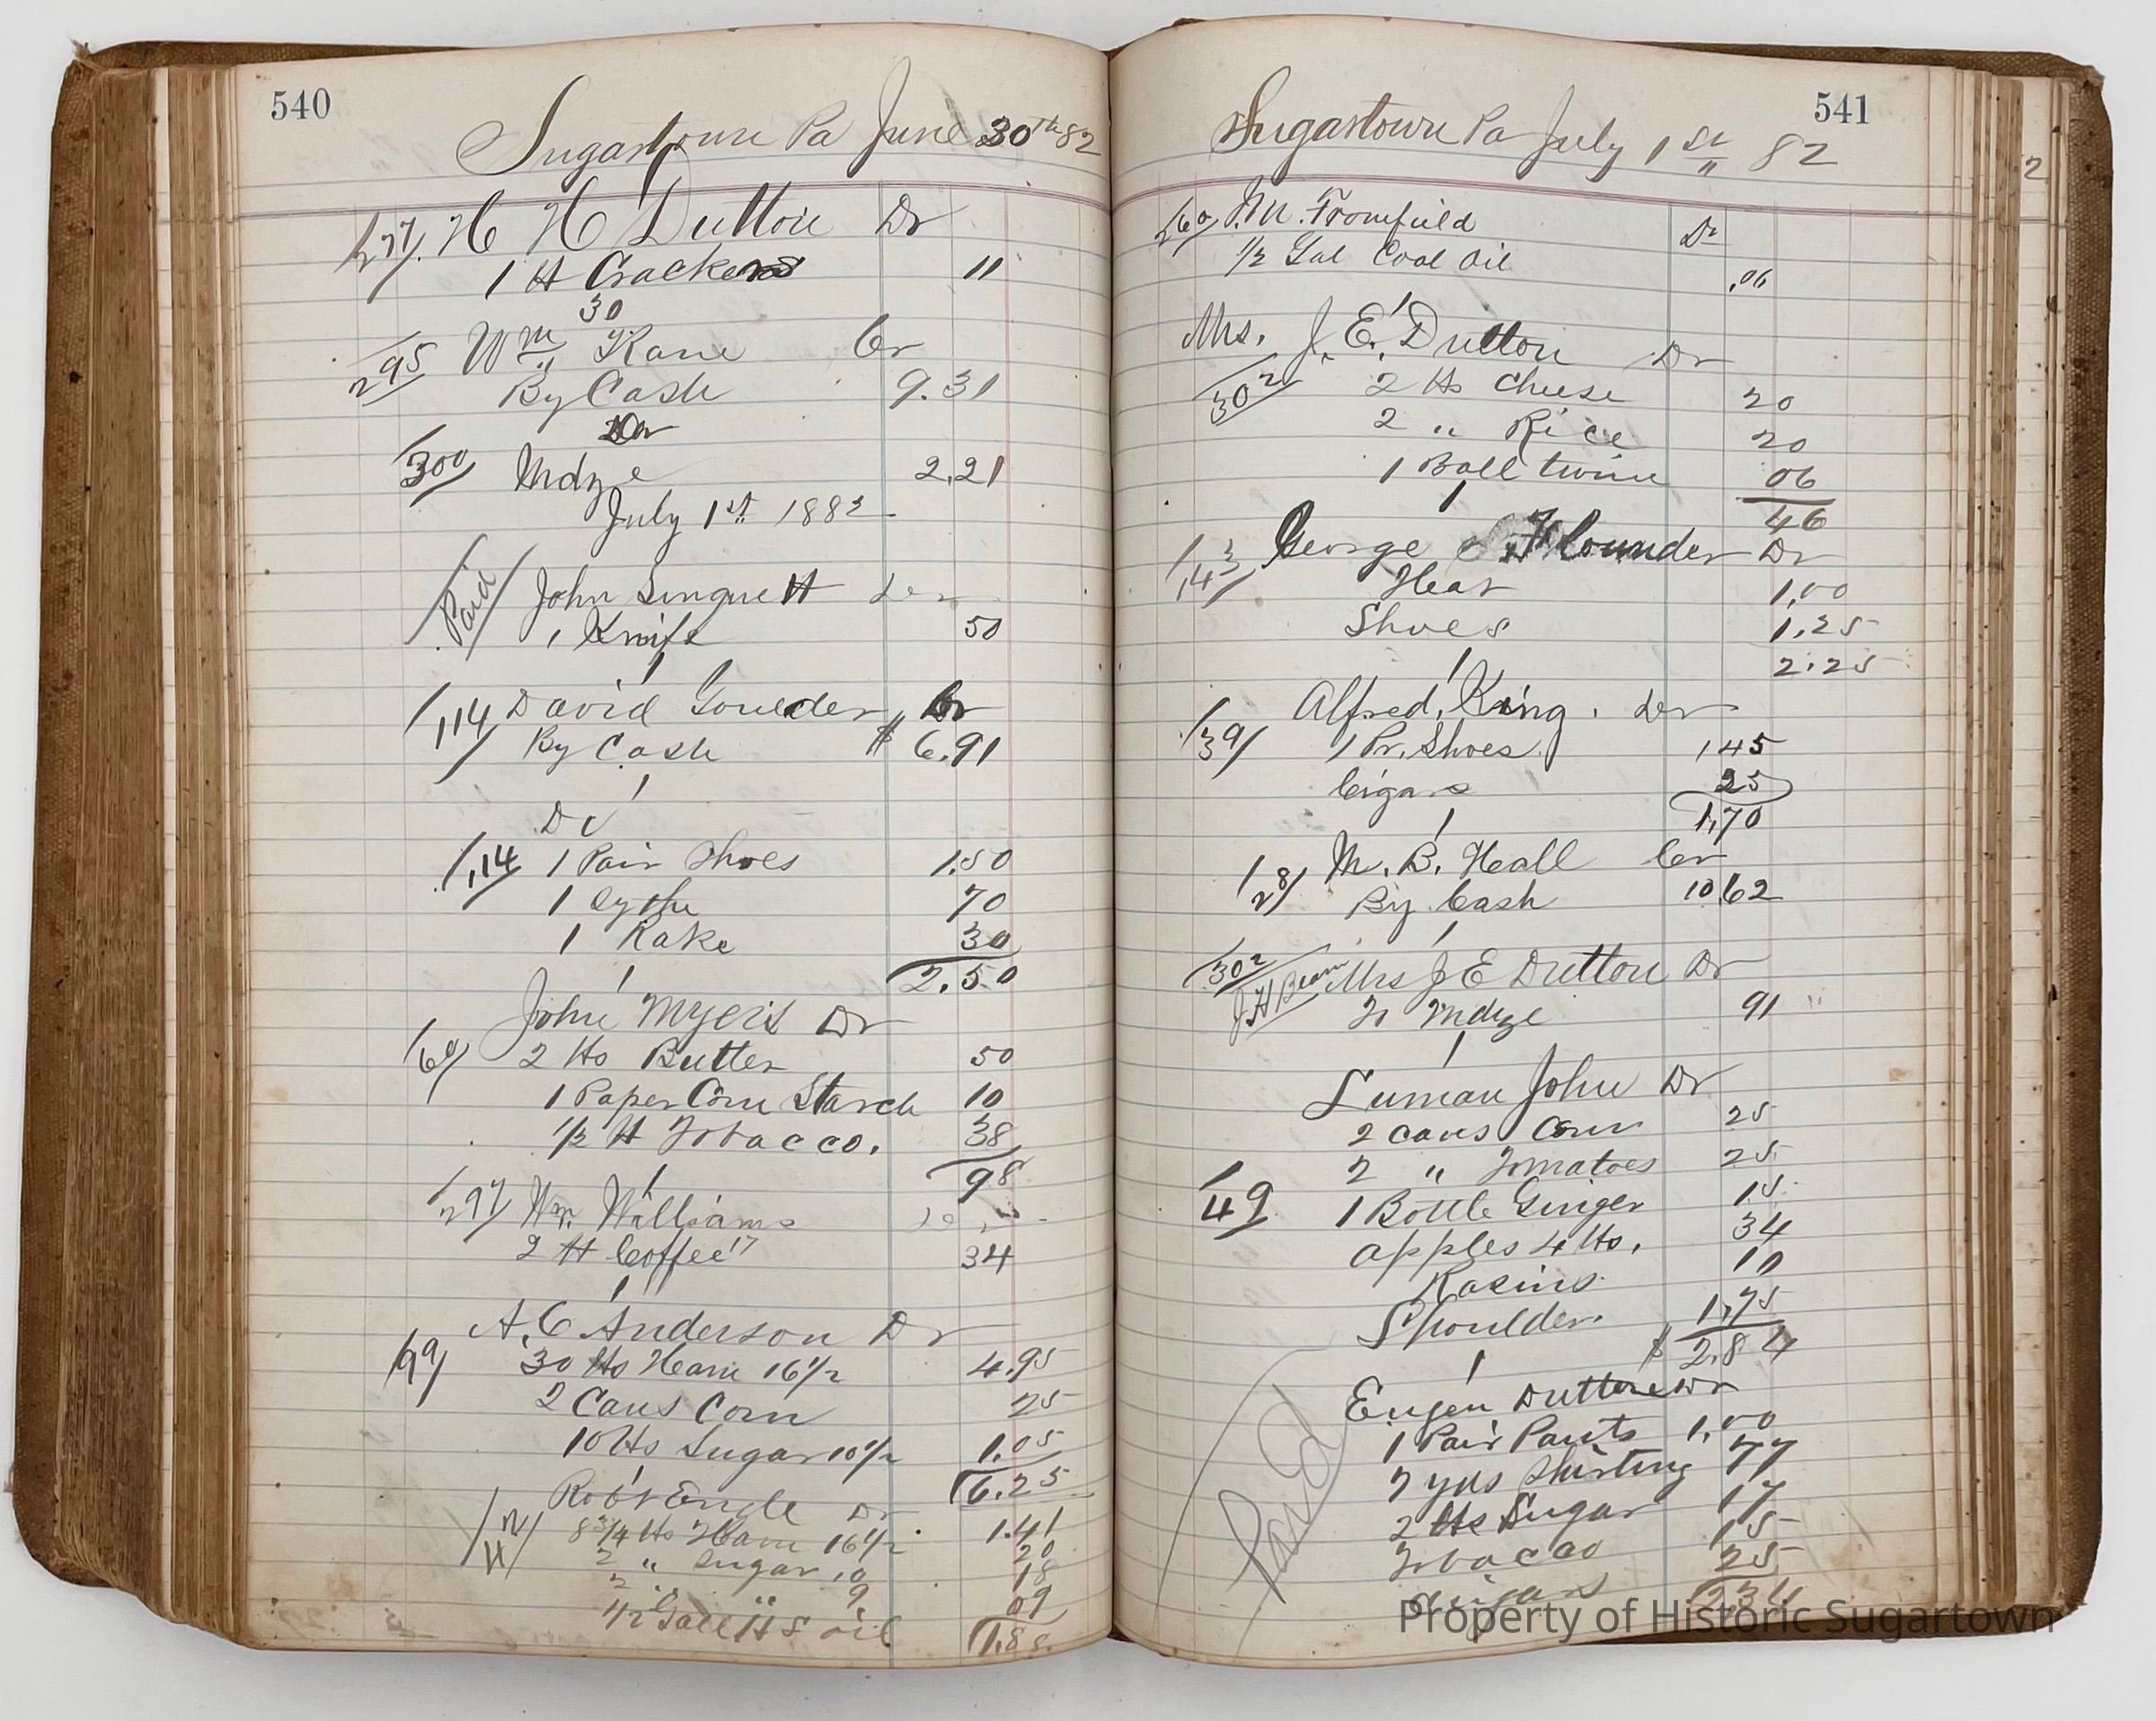 540
Sugartown Pa June 30th 82
297 H H Dutton Dr
1 lb Crackers 11
30
295 Wm Kane Cr
By Cash 9.31
Dr
300 Mdze 2.21
July 1st 1882
Paid John Dr
1 Knife 50
1
114 David Goulder Cr
By Cash $ 6.91
1
Dr
114 1 Pair Shoes 1.50
1 Sythe 70
1 Rake 30
2.50
1
John Myers Dr
69 2 lbs Butter 50
1 Paper Corn Starch 10
1/2 lb Tobacco. 38
98
1
297 Wm Williams
2 lb Coffee 17 34
1
A. C Anderson Dr
99 30 lbs Ham 16 1/2 4.95
2 Cans Corn 25
10 lbs Sugar 10 1/2 1.05
6.25
1
Robt Engle Dr
8 3/4 lbs Ham 16 1/2 1.41
2 " Sugar 10 20
2 " " 9 18
1/2 Gall H S oil 09
1.88
541
Sugartown Pa July 1st 82
260
1/2 Gal Coal Oil .06
1
Mrs. J. E. Dutton Dr
302 2 lbs Cheese 20
2 " Rice 20
1 Ball twine 06
46
1
143 George Flounder Dr
Hat 1,00
Shoes 1.25
2.25
1
Alfred King. Dr
39 1 Pr. Shoes 1 45
Cigars 25
1,70
1
28 M. B. Heall Cr
By Cash 10 62
1
302 Mrs J E Dutton Dr
J H Beam To Mdze 91
1
Luman John Dr
2 cans Corn 25
2 " Tomatoes 25
49 1 Bottle Ginger 15
apples 4 lbs. 34
Rasins 10
Shoulder. 1,75
$ 2.84
1
Paid Eugen Dutton Dr
1 Pair Pants 1,00
7 yds Shirting 77
2 lbs Sugar 17
Tobacco 15
Cigars 25
2.34
2
Property of Historic Sugartown